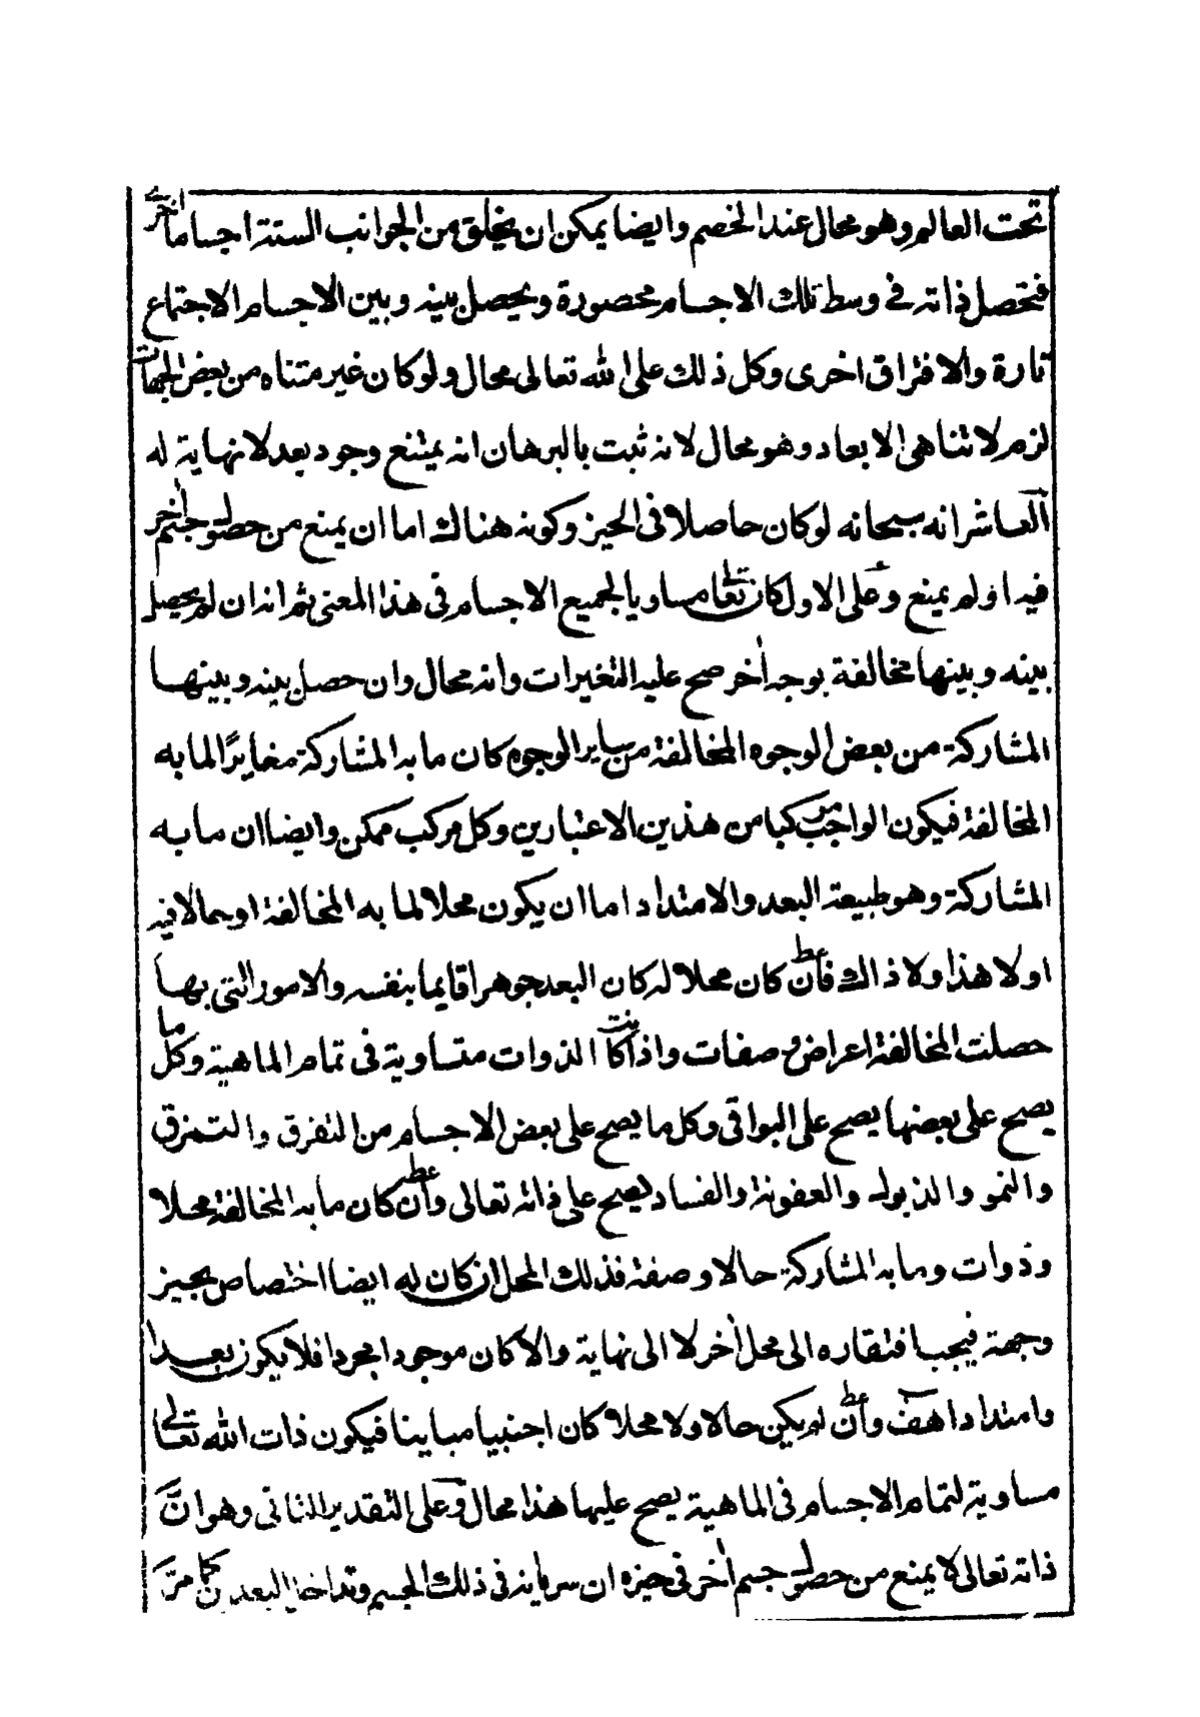 تحت العالم وهو محال عند الخصم وايضا يمكن ان يخلق من الجوانب الستة اجساما اخرى
فتحصل ذاته في وسط تلك الاجسام محصورة ويحصل بينه وبين الاجسام الاجتماع
تارة والافتراق اخرى وكل ذلك على الله تعالى محال ولو كان غير متناه من بعض الجهات
لزم لا تناهى الابعاد وهو محال لانه ثبت بالبرهان انه يمتنع وجود بعد لا نهاية له
العاشر انه سبحانه لو كان حاصلا فى الحيز وكونه هناك اما ان يمنع من حصول جسم آخر
فيه او لم يمنع وعلى الاول كان تعا مساويا لجميع الاجسام فى هذا المعنى ثم انه ان لم يحصل
بينه وبينها مخالفة بوجه اٰخر صح عليه التغيرات وانه محال وان حصل بينه وبينها
المشاركة من بعض الوجوه المخالفة من ساير الوجوه كان ما به المشاركة مغايرًا لما به
المخالفة فيكون الواجب مركبا من هذين الاعتبارين وكل مركب ممكن وايضا ان ما به
المشاركة وهو طبيعة البعد والامتداد اما ان يكون محلا لما به المخالفة او حالا فيه
او لا هذا ولا ذاك فان كان محلا له كان البعد جوهرا قايما بنفسه والامور التى بها
حصلت المخالفة اعراض وصفات واذا كانت الذوات متساوية فى تمام الماهية وكل ما
يصح على بعضها يصح على البواقى وكل ما يصح على بعض الاجسام من التفرق والتمزق
والنمو والذبول والعفونة والفساد يصح على ذاته تعالى وان كان ما به المخالفة محلا
وذوات وما به المشاركة حالا وصفة فذلك المحل ان كان له ايضا اختصاص بحيز
وجهة فيجب افتقاره الى محل اٰخر لا الى نهاية والا كان موجودا مجردا فلا يكون بعدا
وامتدادا هف وان لم يكن حالا ولا محلا كان اجنبيا مباينا فيكون ذات الله تعالى
مساوية لتمام الاجسام فى الماهية يصح عليها هذا محال وعلى التقدير الثانى وهو انّ
ذاته تعالى لا يمنع من حصول جسم اٰخر فى حيزه ان سريانه فى ذلك الجسم وتداخل البعدين كما مرّ